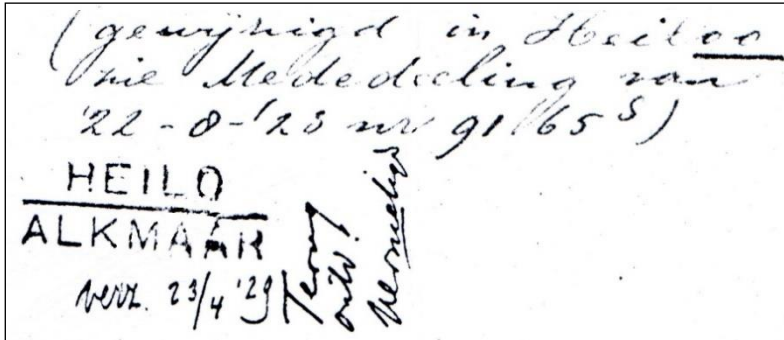 (gewijzigd in Heiloo
zie Mededeeling van
22-8-'23 nr 91165 S)
HEILO
ALKMAAR
verz. 23/4 '29
Terug
ontv.
Vernietigd